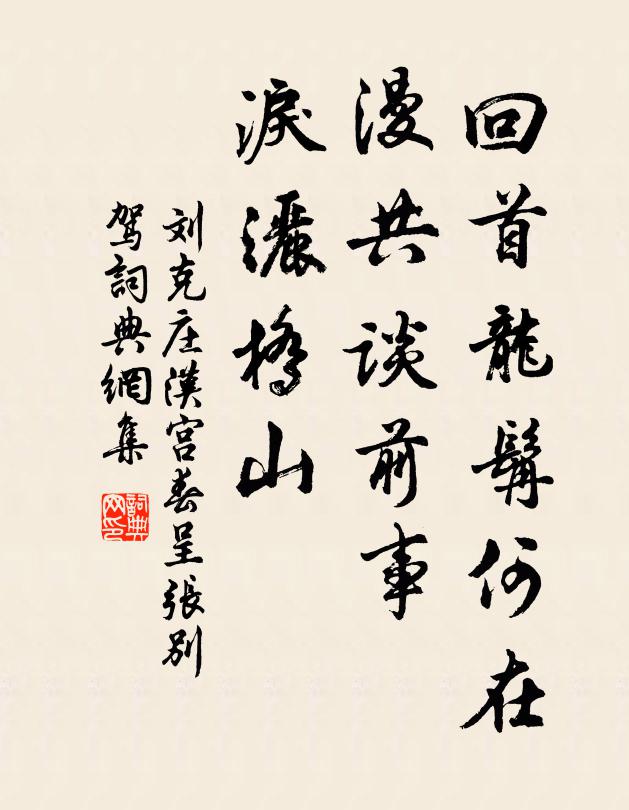 回首龍髯何在
漫共談前事
淚灑橋山
刘克庄漢宫春呈張别
駕詞典網集
詞典網印